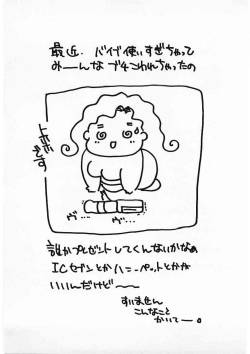 最近、バイブ使いすぎちゃって
みーんな ブチこわれちゃったの
ヴ… ヴ…
誰かプレゼントしてくんないかなの
ICセブンとかハニーペットとかが
いいんだけど〜
すいません
こんなこと
かいてー。